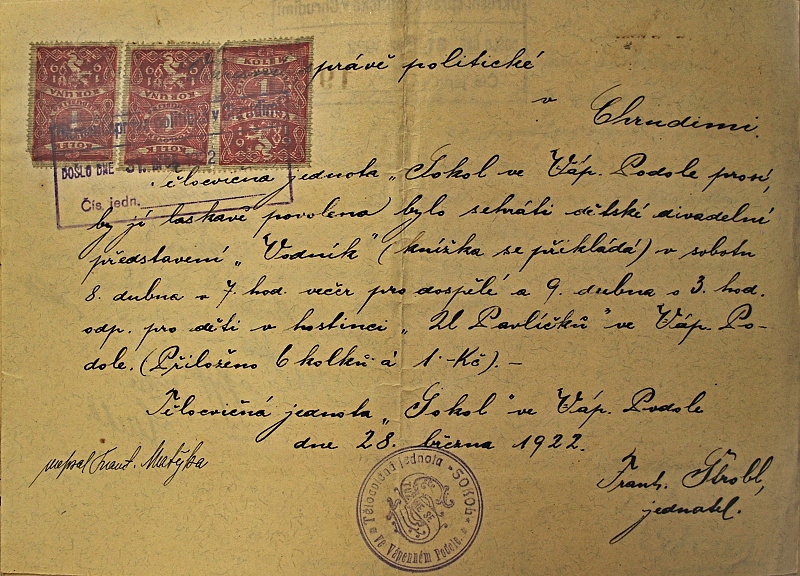 správě politické
v
Chrudimi.
DOŠLO DNE 31.
Čís. jedn.
Tělocvičná jednota „Sokol ve Váp. Podole prosí,
by jí laskavě povoleno bylo sehráti dětské divadelní
představení „Vodník" (knížka se přikládá) v sobotu
8. dubna v 7. hod. večer pro dospělé a 9. dubna o 3. hod.
odp. pro děti v hostinci „U Pavlíčků" ve Váp. Po-
dole. (Přiloženo 6 kolků á 1·Kč).-
Tělocvičná jednota „Sokol" ve Váp. Podole
dne 28. března 1922.
Frant. Matyka
Frant. Štrobl,
jednatel.
Tělocvičná jednota "SOKOL"
ve Vápenném Podole.